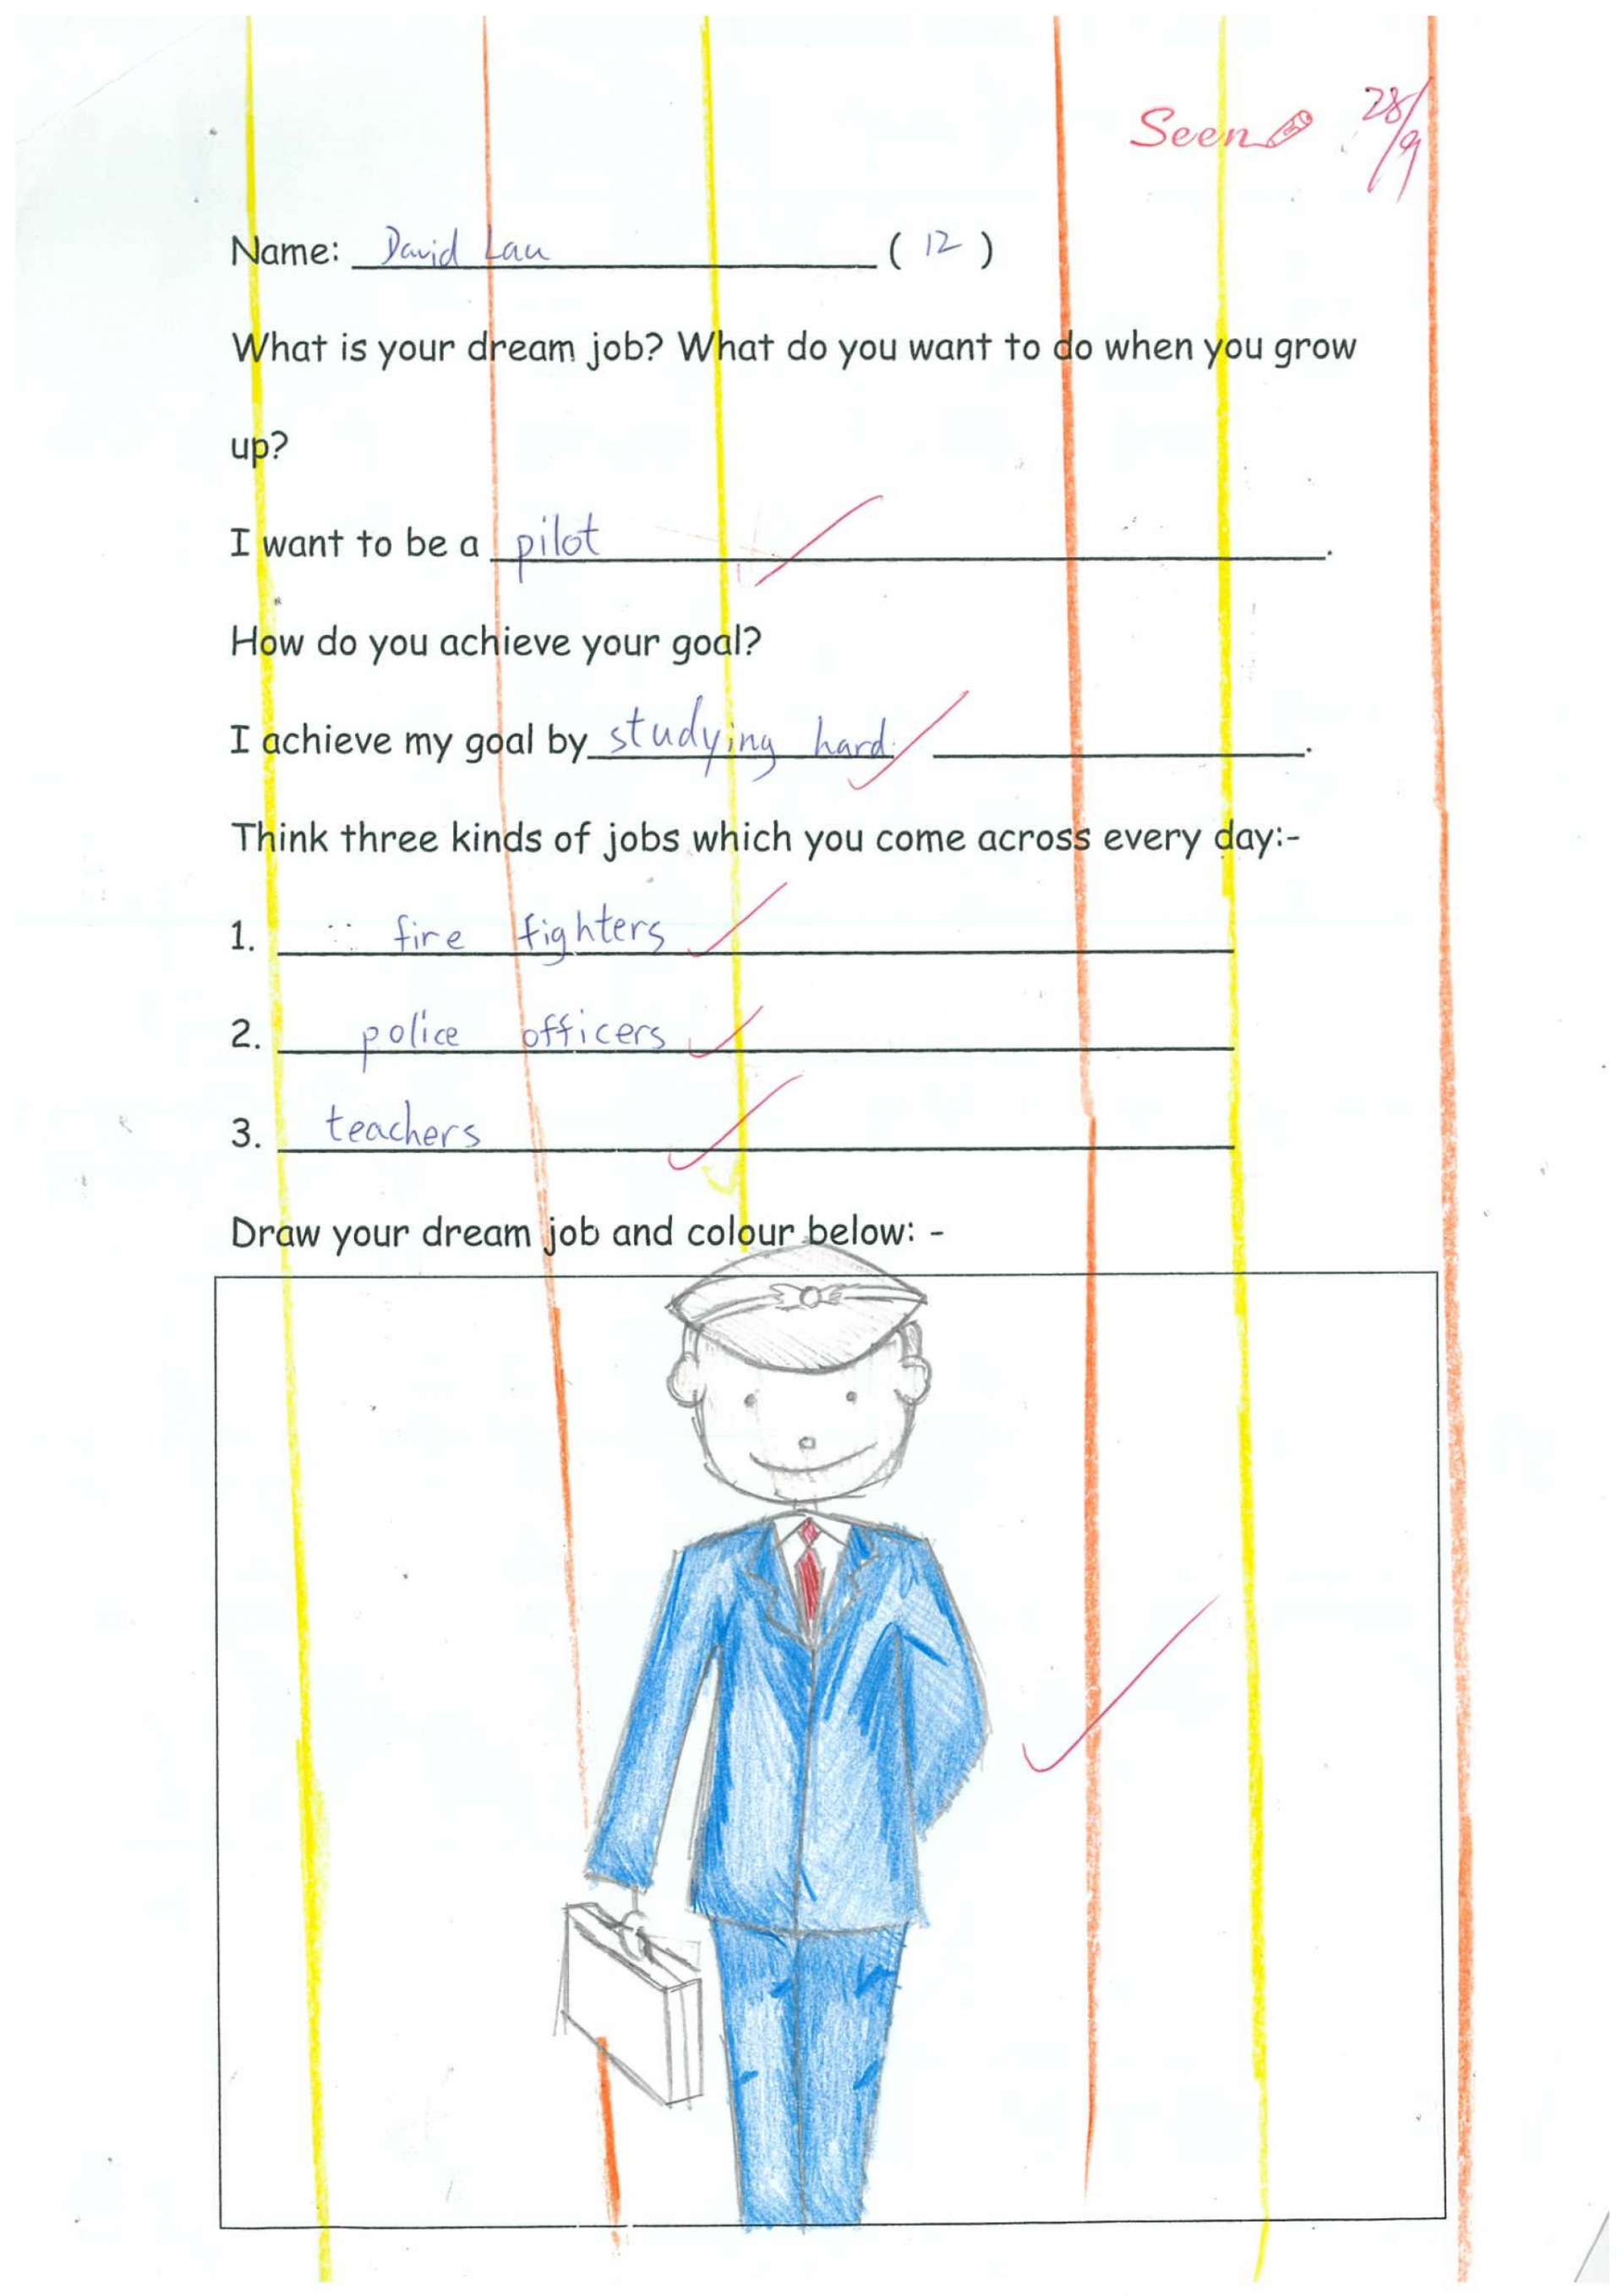 Seen 28/9
Name: David Lau ( 12 )
What is your dream job? What do you want to do when you grow
up?
I want to be a pilot.
How do you achieve your goal?
I achieve my goal by studying hard.
Think three kinds of jobs which you come across every day:-
1. fire fighters
2. police officers
3. teachers
Draw your dream job and colour below: -